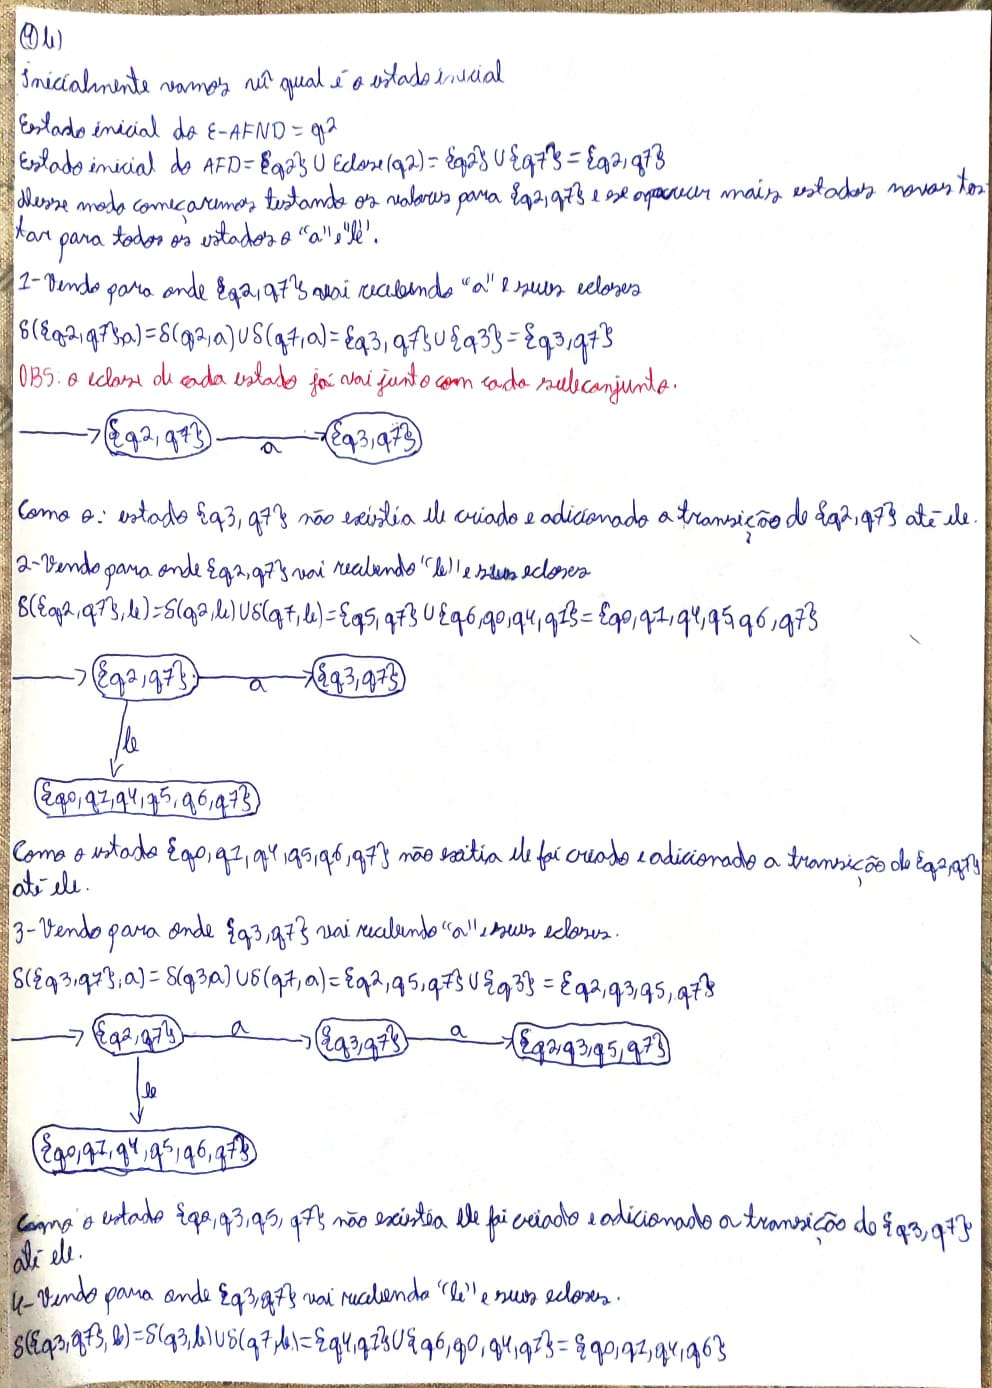 9b)
Inicialmente vamos ver qual é o estado inicial
Estado inicial do E-AFND = q2
Estado inicial do AFD = {q2} U Eclose(q2) = {q2} U {q7} = {q2, q7}
Desse modo começaremos testando os valores para {q2, q7} e se aparecer mais estados novos tes
tar para todos os estados o "a" e "b".
1-Vendo para onde {q2, q7} vai recebendo "a" e seus ecloses
δ({q2, q7},a)=δ(q2,a)Uδ(q7,a)={q3, q7}U{q3}={q3,q7}
OBS: o eclose de cada estado já vai junto com cada subconjunto.
{q2, q7} a {q3, q7}
Como o: estado {q3, q7} não existia ele criado e adicionado a transição de {q2, q7} até ele.
2-Vendo para onde {q2, q7} vai recebendo "b" e seus ecloses
δ({q2, q7},b)=δ(q2,b)Uδ(q7,b)={q5, q7}U{q6,q0,q4,q1}={q0,q1,q4,q5,q6,q7}
{q2,q7} a {q3,q7}
b
{q0,q1,q4,q5,q6,q7}
Como o estado {q0,q1,q4,q5,q6,q7} não existia ele foi criado e adicionado a transição de {q2,q7}
até ele.
3-Vendo para onde {q3,q7} vai recebendo "a" e seus ecloses.
δ({q3,q7},a)=δ(q3,a)Uδ(q7,a)={q2,q5,q7}U{q3}={q2,q3,q5,q7}
{q2,q7} a {q3,q7} a {q2,q3,q5,q7}
b
{q0,q1,q4,q5,q6,q7}
Como o estado {q2,q3,q5,q7} não existia ele foi criado e adicionado a transição de {q3,q7}
até ele.
4-Vendo para onde {q3,q7} vai recebendo "b" e seus ecloses.
δ({q3,q7},b)=δ(q3,b)Uδ(q7,b)={q4,q1}U{q6,q0,q4,q1}={q0,q1,q4,q6}